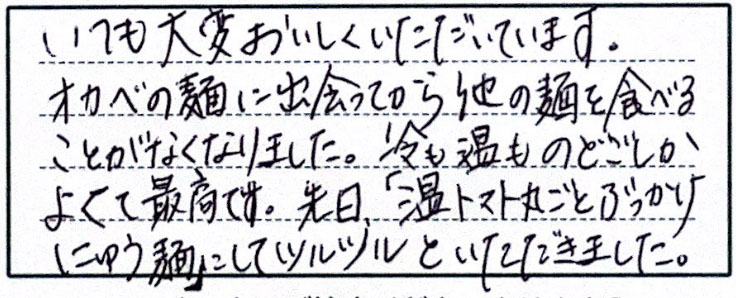 いつも大変おいしくいただいています。
オカベの麺に出会ってから他の麺を食べる
ことがなくなりました。冷も温ものどごしが
よくて最高です。先日、「温トマト丸ごとぶっかけ
にゅう麺」にしてツルツルといただきました。